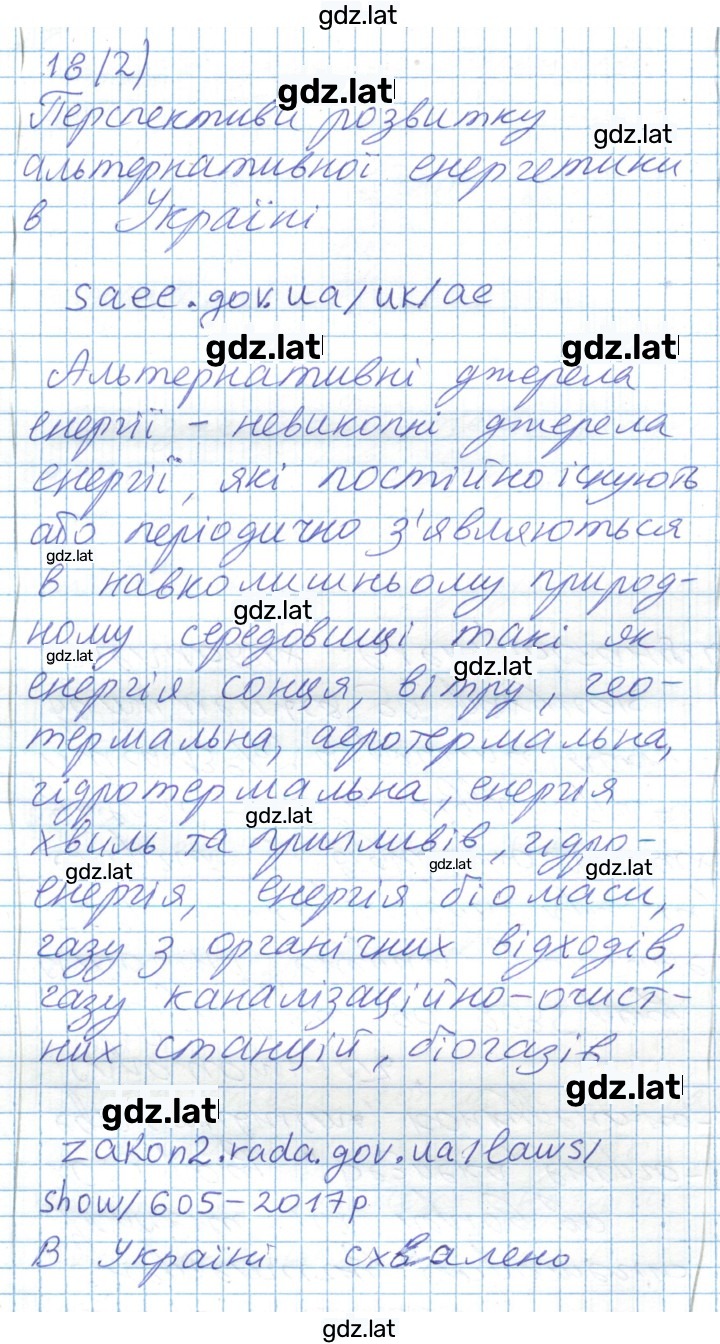 gdz.lat
18(2)
gdz.lat
Перспективи розвитку
gdz.lat
альтернативної енергетики
в Україні
saee.gov.ua/uk/ae
gdz.lat gdz.lat
Альтернативні джерела
енергії - невикопні джерела
енергії, які постійно існують
або періодично з'являються
gdz.lat
в навколишньому природ-
gdz.lat
ному середовищі такі як
gdz.lat gdz.lat
енергія сонця, вітру, гео-
термальна, аеротермальна,
гідротермальна, енергія
gdz.lat
хвиль та припливів, гідро-
gdz.lat gdz.lat gdz.lat
енергія, енергія біомаси,
газу з органічних відходів,
газу каналізаційно-очист-
них станцій, біогазів
gdz.lat
gdz.lat
zakon2.rada.gov.ua/laws/
show/605-2017р
В Україні схвалено
gdz.lat